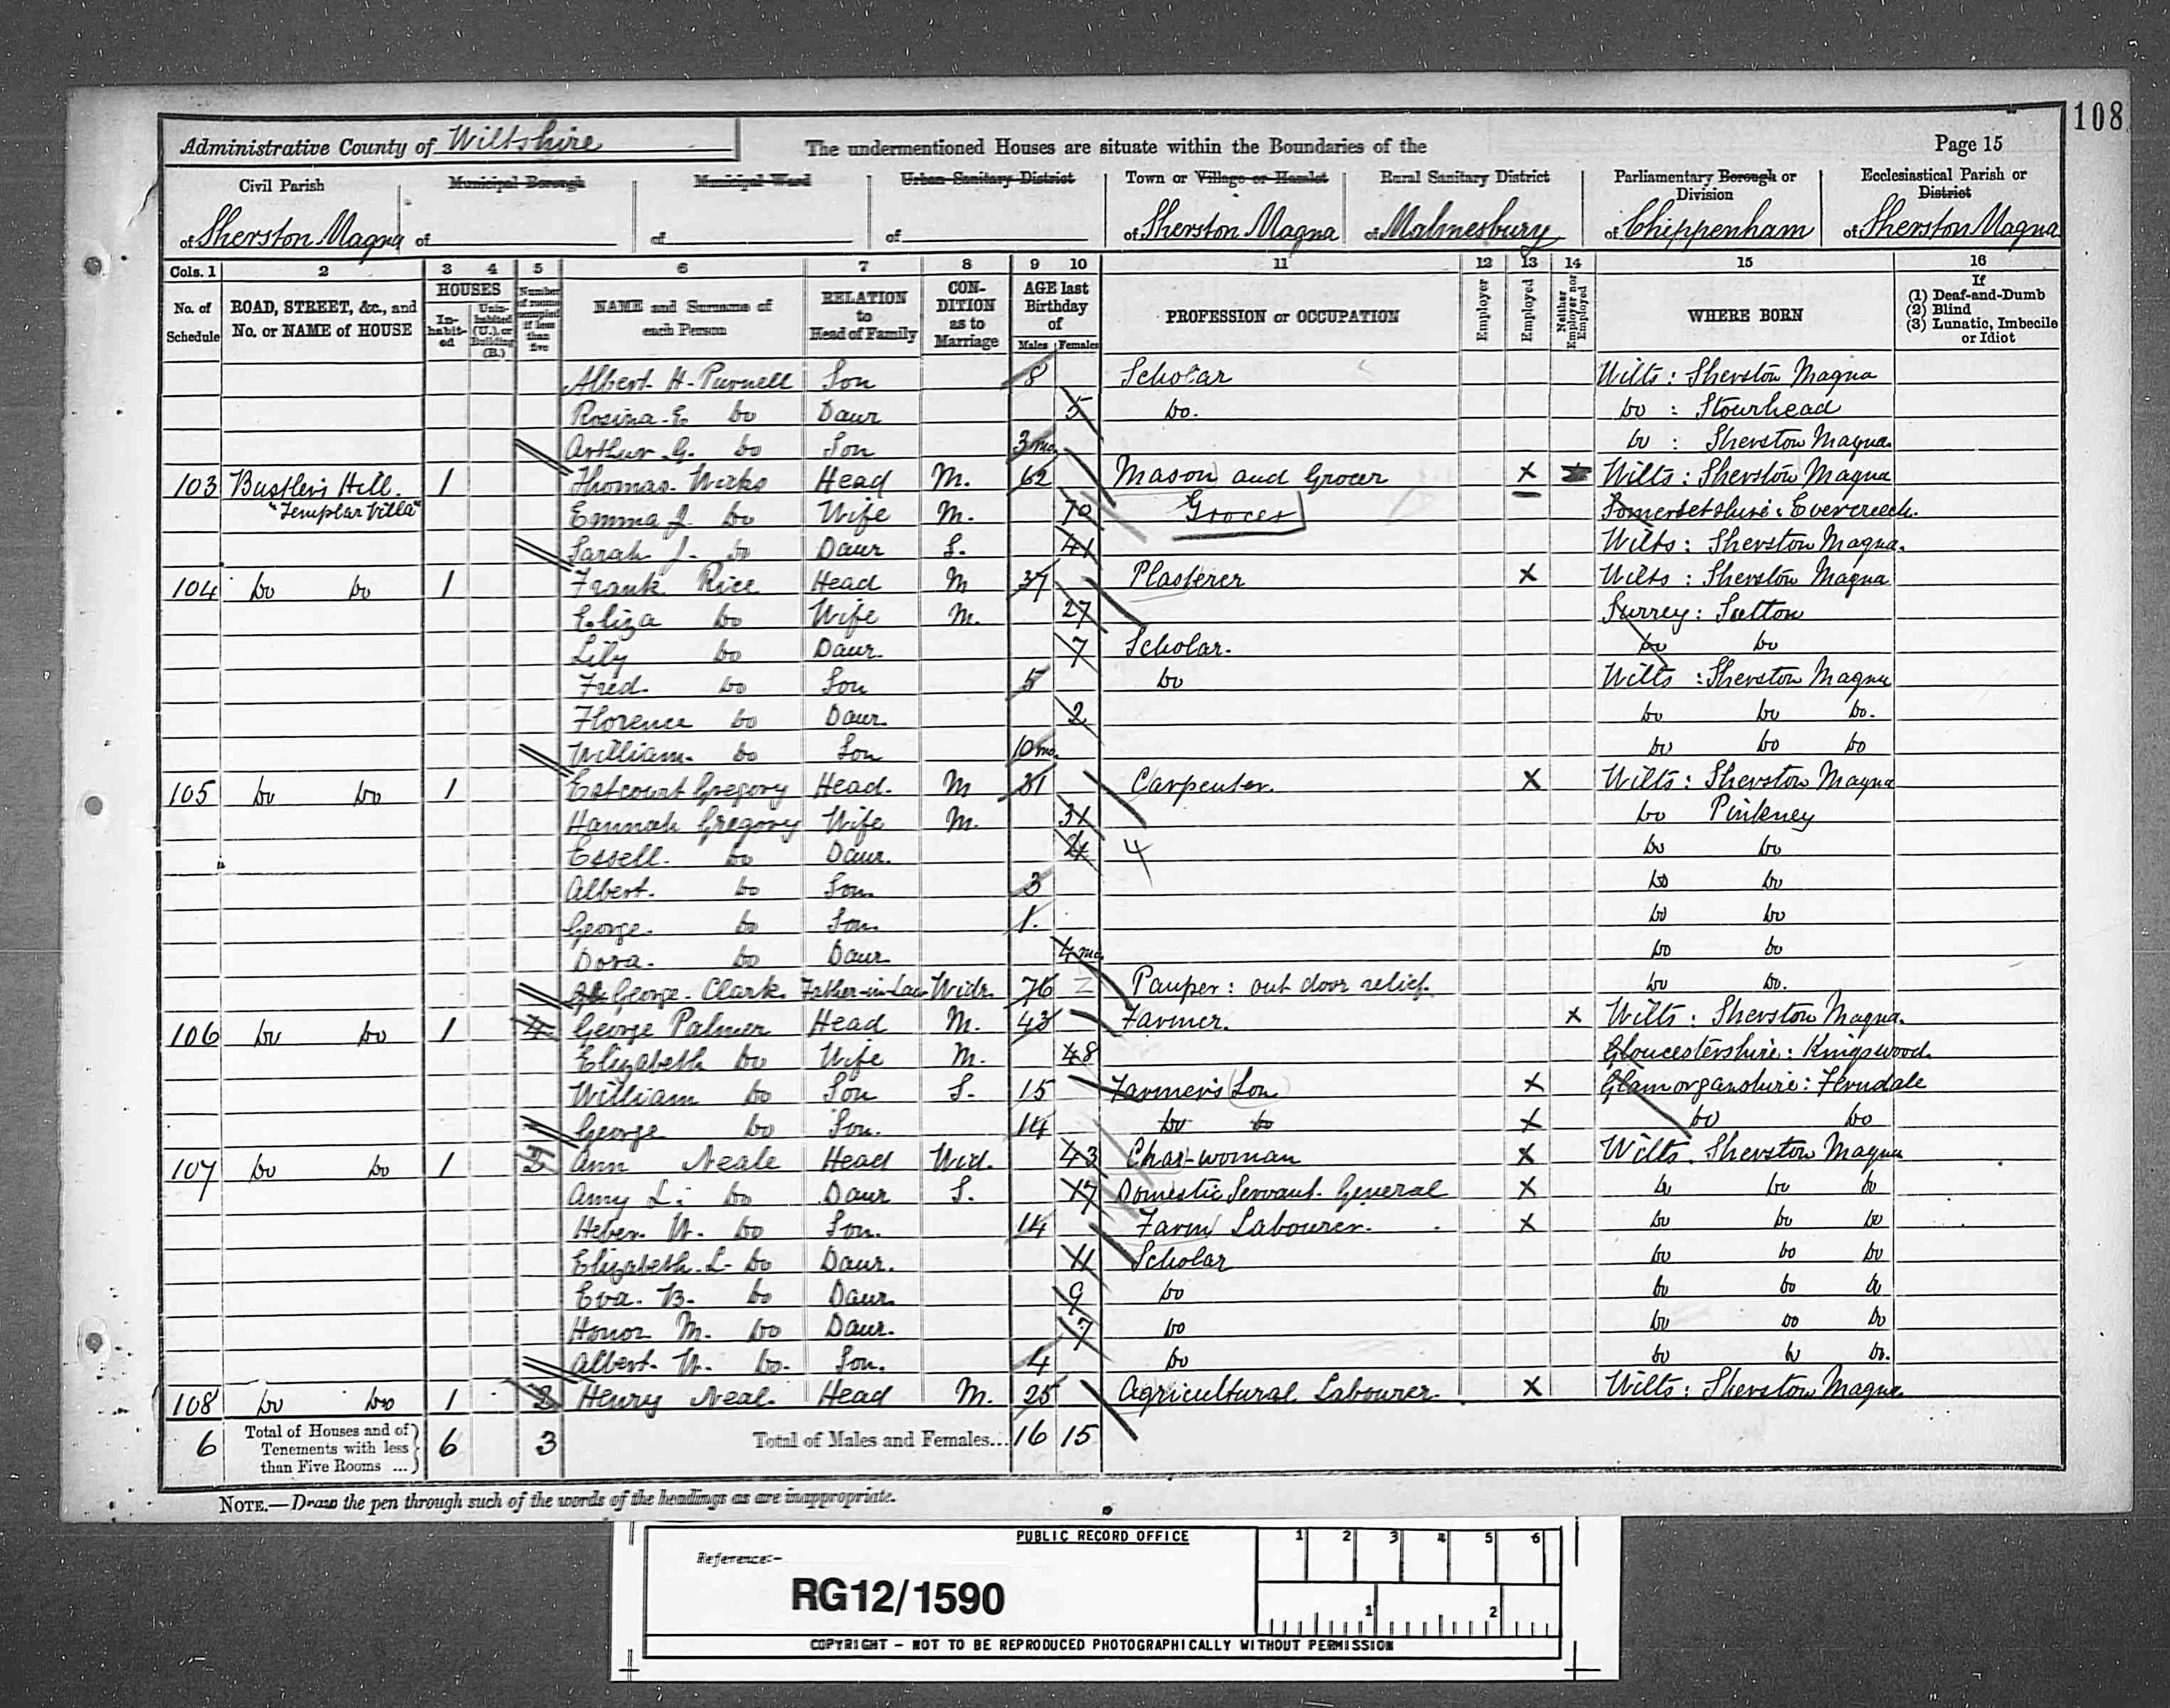 108
Administrative County of Wiltshire The undermentioned Houses are situate within the Boundaries of the Page 15
Civil Parish Municipal Borough Municipal Ward Urban Sanitary District Town or Village or Hamlet Rural Sanitary District Parliamentary Borough or Division Ecclesiastical Parish or District
of Sherston Magna of of of of Sherston Magna of Malmesbury of Chippenham of Sherston Magna
Cols. 1 2 3 4 5 6 7 8 9 10 11 12 13 14 15 16
No. of Schedule ROAD, STREET, &c., and No. or NAME of HOUSE HOUSES Inhabited Uninhabited (U.), or Building (B.) Number of rooms occupied if less than five NAME and Surname of each Person RELATION to Head of Family CONDITION as to Marriage AGE last Birthday of Males Females PROFESSION or OCCUPATION Employer Employed Neither Employer nor Employed WHERE BORN If (1) Deaf-and-Dumb (2) Blind (3) Lunatic, Imbecile or Idiot
Albert H. Purnell Son 8 Scholar Wilts: Sherston Magna
Rosina E. Do Daur 5 Do. Do : Stourhead
Arthur G. Do Son 3 mo. Do : Sherston Magna.
103 Bustler's Hill. 1 Thomas Wicks Head M. 62 Mason and Grocer X Wilts: Sherston Magna
"Templar Villa" Emma J. Do Wife M. 70 Grocer Somersetshire: Evercreech.
Sarah J. Do Daur S. 41 Wilts: Sherston Magna.
104 Do Do 1 Frank Rice Head M 37 Plasterer X Wilts: Sherston Magna
Eliza Do Wife M. 27 Surrey: Sutton
Lily Do Daur. 7 Scholar. Do Do
Fred. Do Son 5 Do Wilts: Sherston Magna
Florence Do Daur. 2 Do Do Do.
William. Do Son 10 mo. Do Do Do
105 Do Do 1 Estcourt Gregory Head. M 31 Carpenter. X Wilts: Sherston Magna
Hannah Gregory Wife M. 31 Do Pinkney
Essell. Do Daur. 4 4 Do Do
Albert. Do Son. 3 Do Do
George. Do Son. 1. Do Do
Dora. Do Daur 4 mo. Do Do
George Clark. Father-in-Law Widr. 76 Pauper: out door relief. Do Do.
106 Do Do 1 4 George Palmer Head M. 43 Farmer. X Wilts: Sherston Magna.
Elizabeth Do Wife M. 48 Gloucestershire: Kingswood.
William Do Son S. 15 Farmer's Son X Glamorganshire: Ferndale
George Do Son. 14 Do Do X Do Do
107 Do Do 1 2 Ann Neale Head Wid. 43 Char-woman X Wilts. Sherston Magna
Amy L. Do Daur S. 17 Domestic Servant. General X Do Do Do
Heber. W. Do Son. 14 Farm Labourer. X Do Do Do
Elizabeth. L. Do Daur. 11 Scholar Do Do Do
Eva. B. Do Daur. 9 Do Do Do Do
Honor M. Do Daur. 7 Do Do Do Do
Albert. W. Do. Son. 4 Do Do Do Do.
108 Do Do 1 2 Henry Neal. Head M. 25 Agricultural Labourer. X Wilts: Sherston Magna
6 Total of Houses and of Tenements with less than Five Rooms ... 6 3 Total of Males and Females... 16 15
NOTE.—Draw the pen through such of the words of the headings as are inappropriate.
PUBLIC RECORD OFFICE 1 2 3 4 5 6
Reference:-
RG12/1590
1 2
COPYRIGHT - NOT TO BE REPRODUCED PHOTOGRAPHICALLY WITHOUT PERMISSION